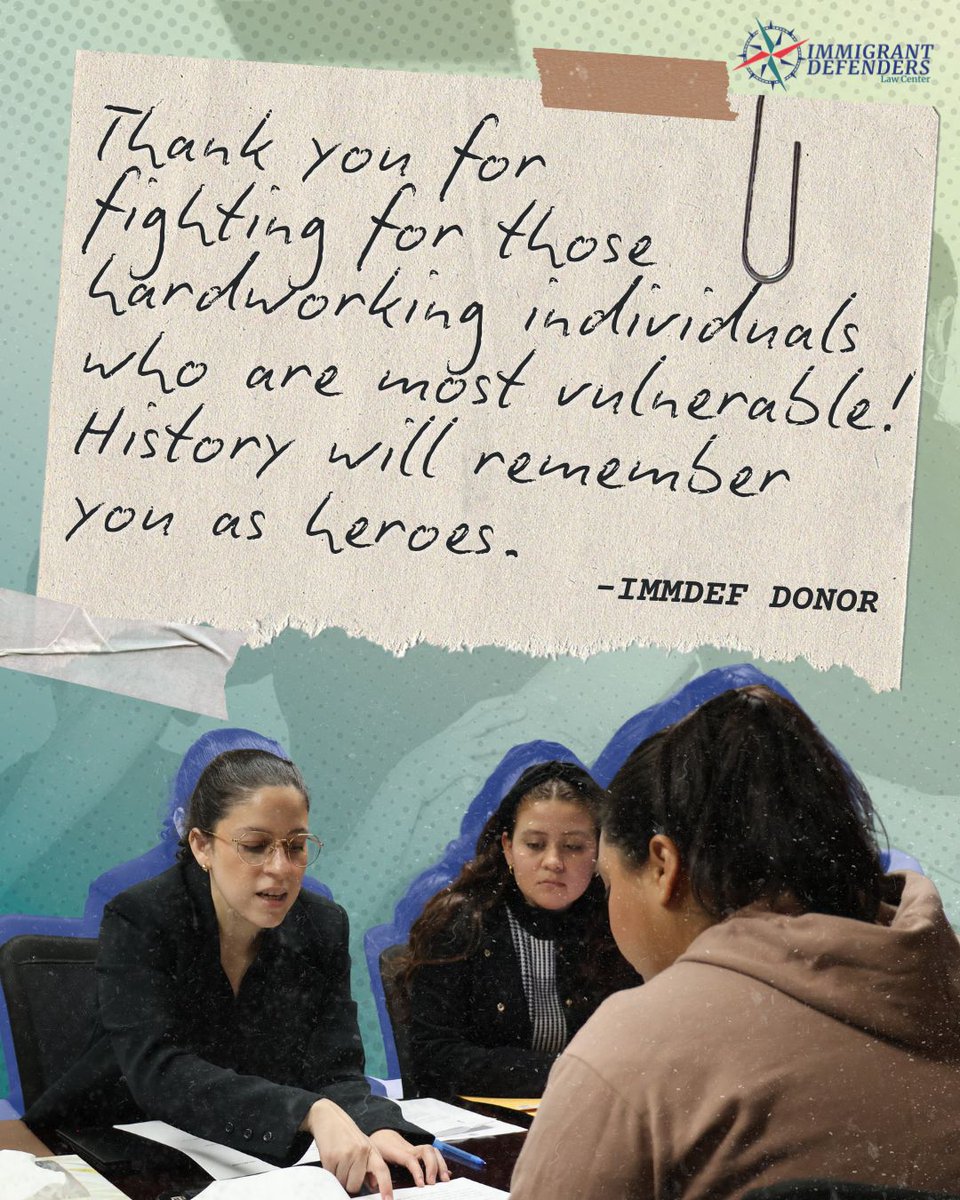 IMMIGRANT
DEFENDERS
Law Center
Thank you for
fighting for those
hardworking individuals
who are most vulnerable!
History will remember
you as heroes.
-IMMDEF DONOR